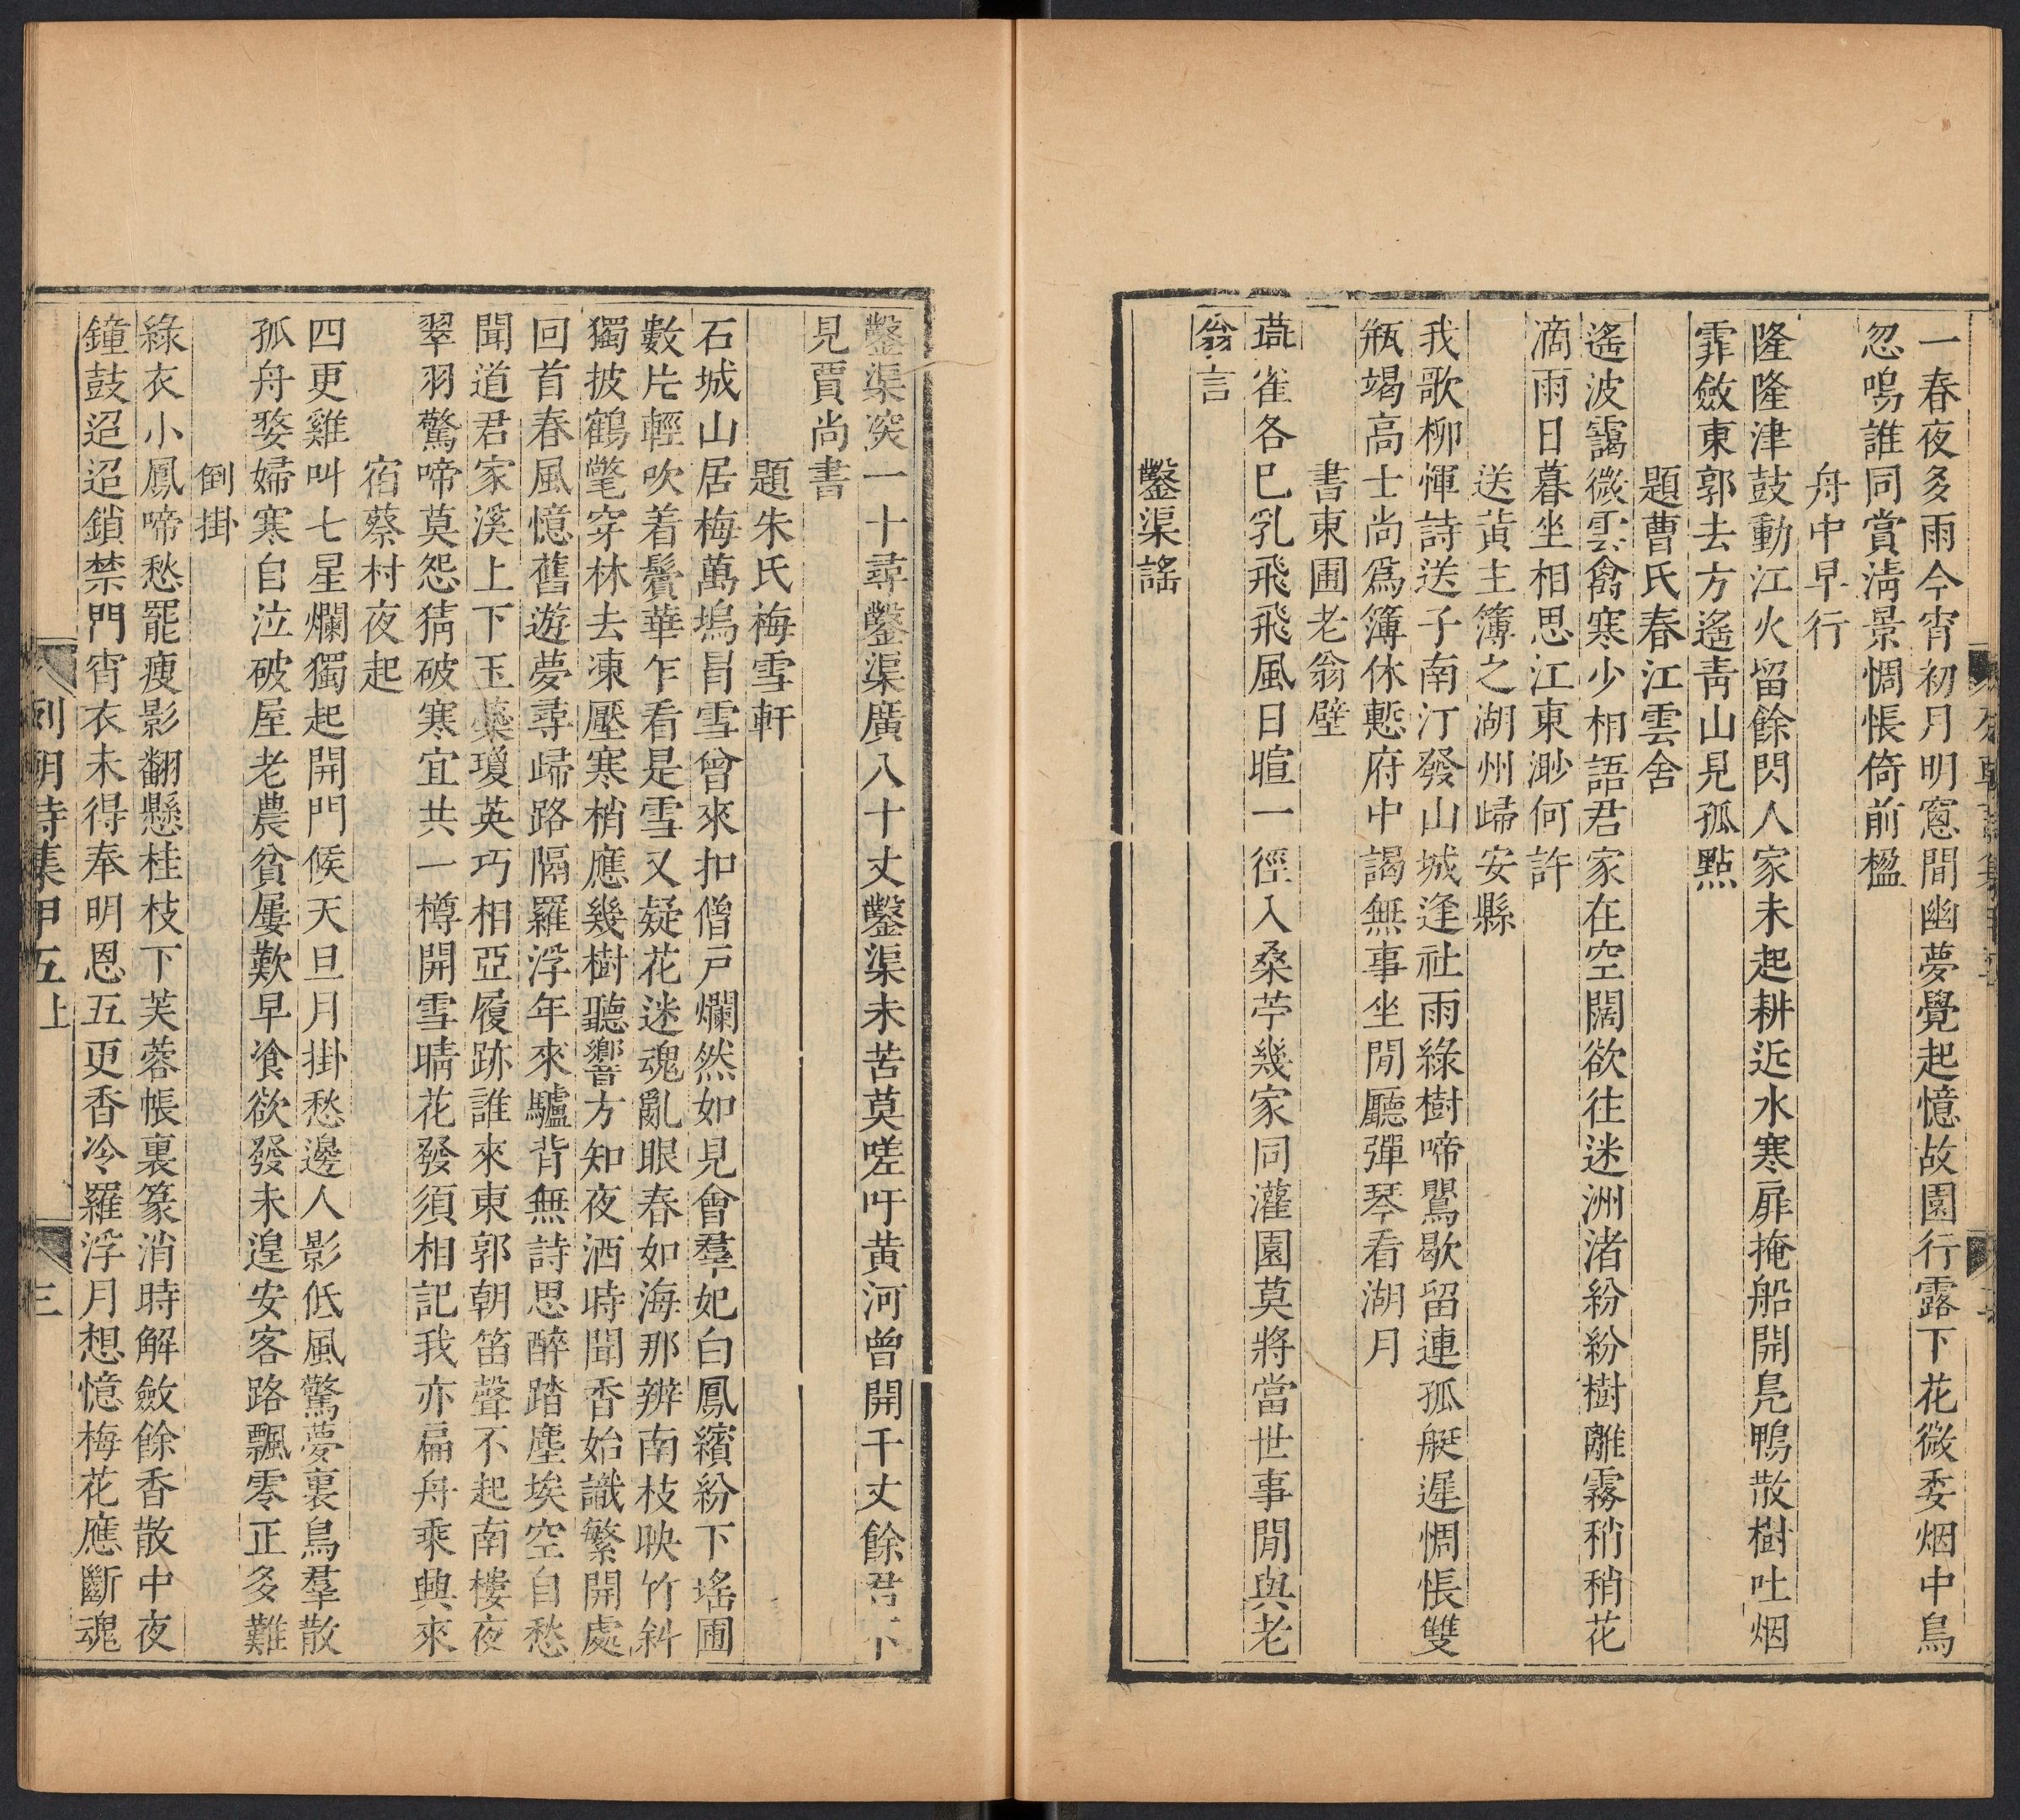 一春夜多雨今宵初月明窻間幽夢覺起憶故園行露下花微委烟中鳥
忽鳴誰同賞淸景惆悵倚前楹
舟中早行
隆隆津鼓動江火留餘閃人家未起耕近水寒扉掩船開鳧鴨散樹吐烟
霏斂東郭去方遙靑山見孤點
題曹氏春江雲舍
遙波靄微雲禽寒少相語君家在空闊欲往迷洲渚紛紛樹離霧稍稍花
滴雨日暮坐相思江東渺何許
送黃主簿之湖州歸安縣
我歌柳惲詩送子南汀發山城逢社雨綠樹啼鶯歇留連孤艇遲惆悵雙
瓶竭高士尚爲簿休慙府中謁無事坐閒廳彈琴看湖月
書東圃老翁壁
燕雀各已乳飛飛風日暄一徑入桑苧幾家同灌園莫將當世事閒與老
翁言
鑿渠謠
鑿渠深一十尋鑿渠廣八十丈鑿渠未苦莫嗟吁黃河曾開千丈餘君不
見賈尚書
題朱氏梅雪軒
石城山居梅萬塢冒雪曾來扣僧戸爛然如見會羣妃白鳳繽紛下瑤圃
數片輕吹着鬢華乍看是雪又疑花迷魂亂眼春如海那辨南枝映竹斜
獨披鶴氅穿林去凍壓寒梢應幾樹聽響方知夜洒時聞香始識繁開處
回首春風憶舊遊夢尋歸路隔羅浮年來驢背無詩思醉踏塵埃空自愁
聞道君家溪上下玉蘂瓊英巧相亞履跡誰來東郭朝笛聲不起南樓夜
翠羽驚啼莫怨猜破寒宜共一樽開雪晴花發須相記我亦扁舟乘興來
宿蔡村夜起
四更雞叫七星爛獨起開門候天旦月掛愁邊人影低風驚夢裏鳥羣散
孤舟嫠婦寒自泣破屋老農貧屢歎早飡欲發未遑安客路飄零正多難
倒掛
綠衣小鳳啼愁罷瘦影翻懸桂枝下芙蓉帳裏篆消時解斂餘香散中夜
鐘鼓迢迢鎖禁門宵衣未得奉明恩五更香冷羅浮月想憶梅花應斷魂
列朝詩集甲五上
三